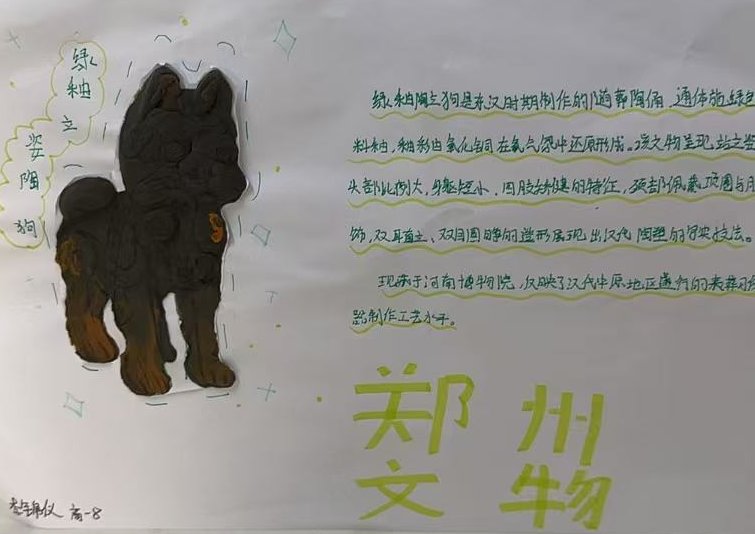 绿釉立
姿陶狗
绿釉陶立狗是东汉时期制作的随葬陶俑,通体施绿色
料釉,釉彩由氧化铜在氧气氛中还原形成。该文物呈现站立姿
头部比例大,身躯短小,四肢矫健的特征,颈部佩戴项圈与
饰,双耳直立、双目圆睁的造型展现出汉代陶塑的写实技法。
现存于河南博物院,反映了汉代中原地区盛行的丧葬习俗
器制作工艺水平。
郑州
文物
高一8